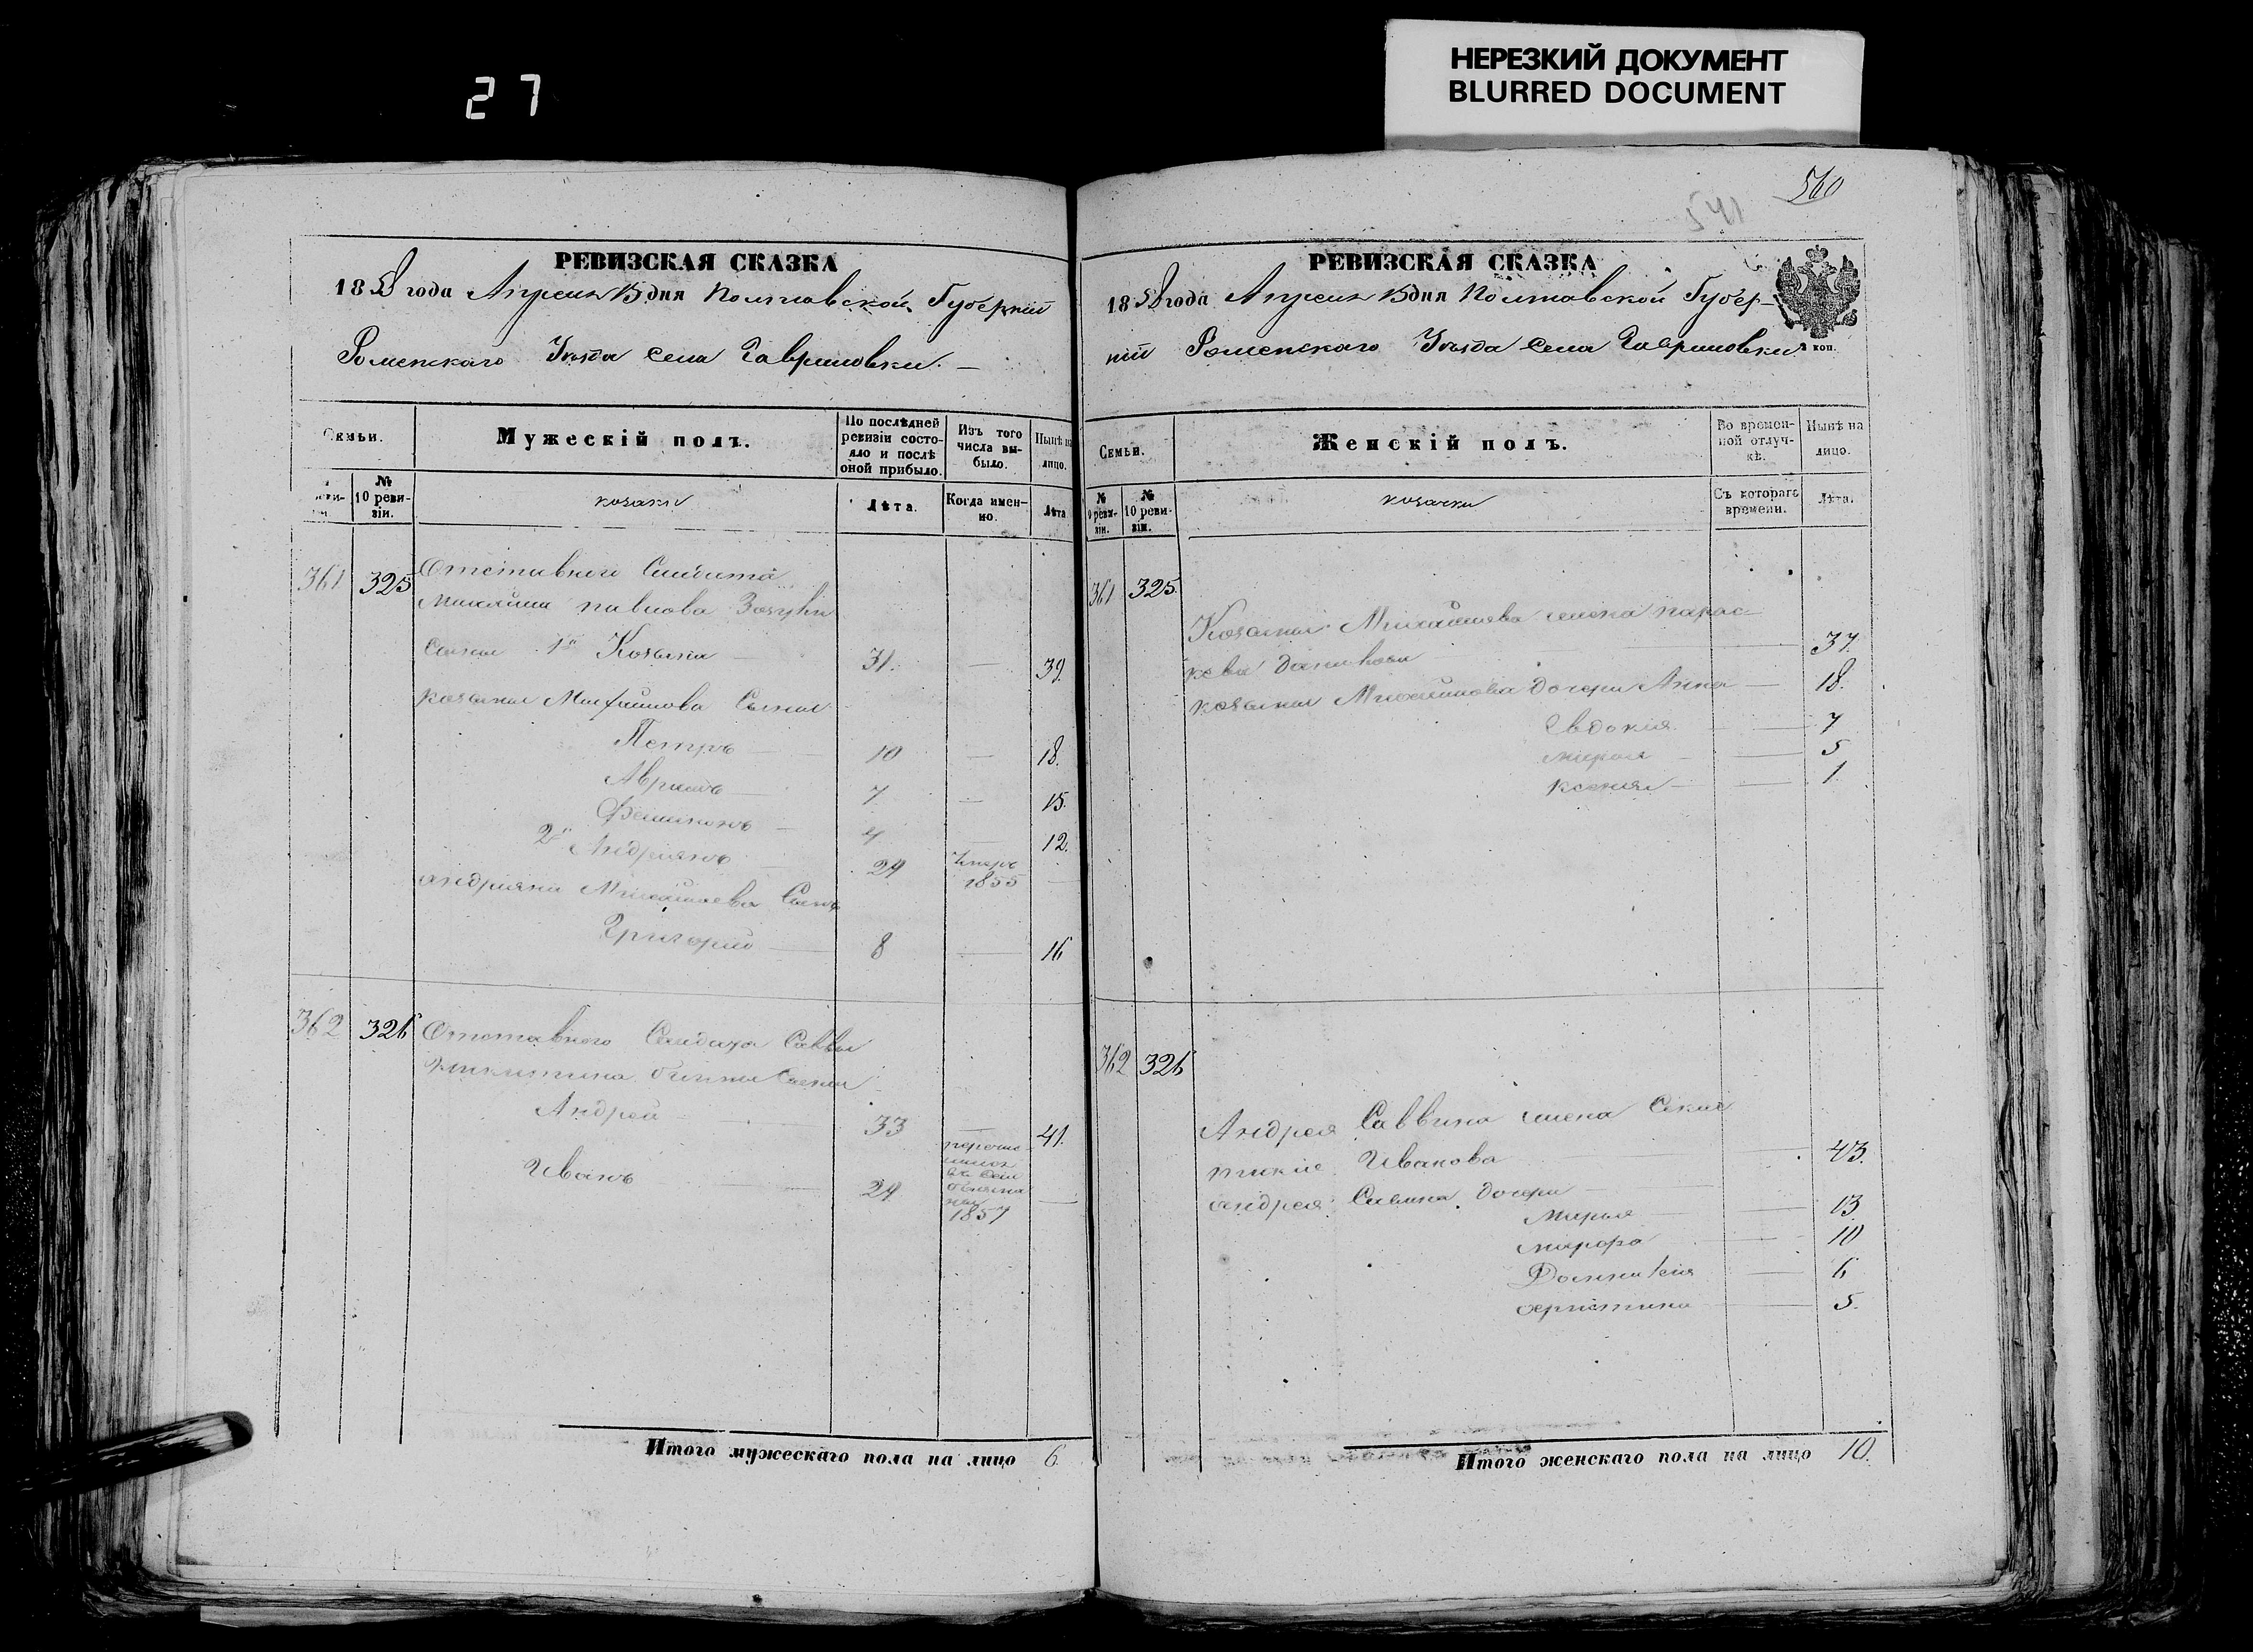 27
НЕРЕЗКИЙ ДОКУМЕНТ
BLURRED DOCUMENT
РЕВИЗСКАЯ СКАЗКА
1858 года Апреля 15 дня Полтавской Губерніи
Роменскаго Уѣзда села Гавриловки.
Семьи.
Мужескій полъ.
По послѣдней ревизіи состояло и послѣ оной прибыло.
Изъ того числа выбыло.
Нынѣ на лицо.
№ 10 ревизіи.
козаки
Лѣта.
Когда именно.
Лѣта
361 325 Отставного Солдата
Михаила Павлова
Сыны 1й Козьма — 31. — 39.
Козьмы Михайлова Сыны
Петръ — 10 — 18.
Аврамъ — 7 — 15.
Филимонъ — 4 — 12.
2й Андріянъ — 29 умеръ 1855 —
Андріяна Михайлова Сынъ
Григорій — 8 — 16
362 326 Отставного Солдата Саввы
Никитина Сыны
Андрей — 33 — 41.
Иванъ — 29
1857 —
Итого мужескаго пола на лицо 6.
541
560
РЕВИЗСКАЯ СКАЗКА
1858 года Апреля 15 дня Полтавской Губер-
ніи Роменскаго Уѣзда села Гавриловки
коп.
Семьи.
Женскій полъ.
Во временной отлучкѣ.
Нынѣ на лицо.
№ ревизіи.
№ 10 ревизіи.
козачки
Съ котораго времени.
Лѣта.
361 325.
Козьмы Михайлова жена Парас-
кева — 37.
Козьмы Михайлова дочери Анна — 18.
Евдокія — 7
Марья — 5
Ксенія — 1
362 326
Андрея Саввина жена
Иванова — 43.
Андрея Савина дочери —
Марья — 13
Марфа — 10
6
Христина — 5.
Итого женскаго пола на лицо 10.